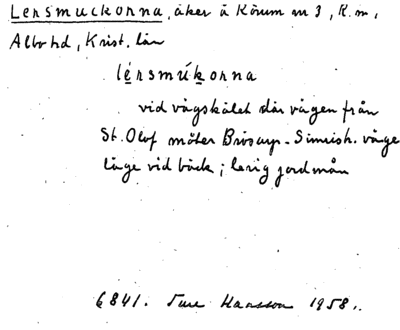 Lersmuckorna, åker å Körum nr 3, R.m,
Albo hd, Krist. län
lérsmúkorna
vid vägskälet där vägen från
St. Olof möter Brösarp-Simrish. väge
läge vid bäck; lerig jordmån
6841. Ture Hansson 1958.